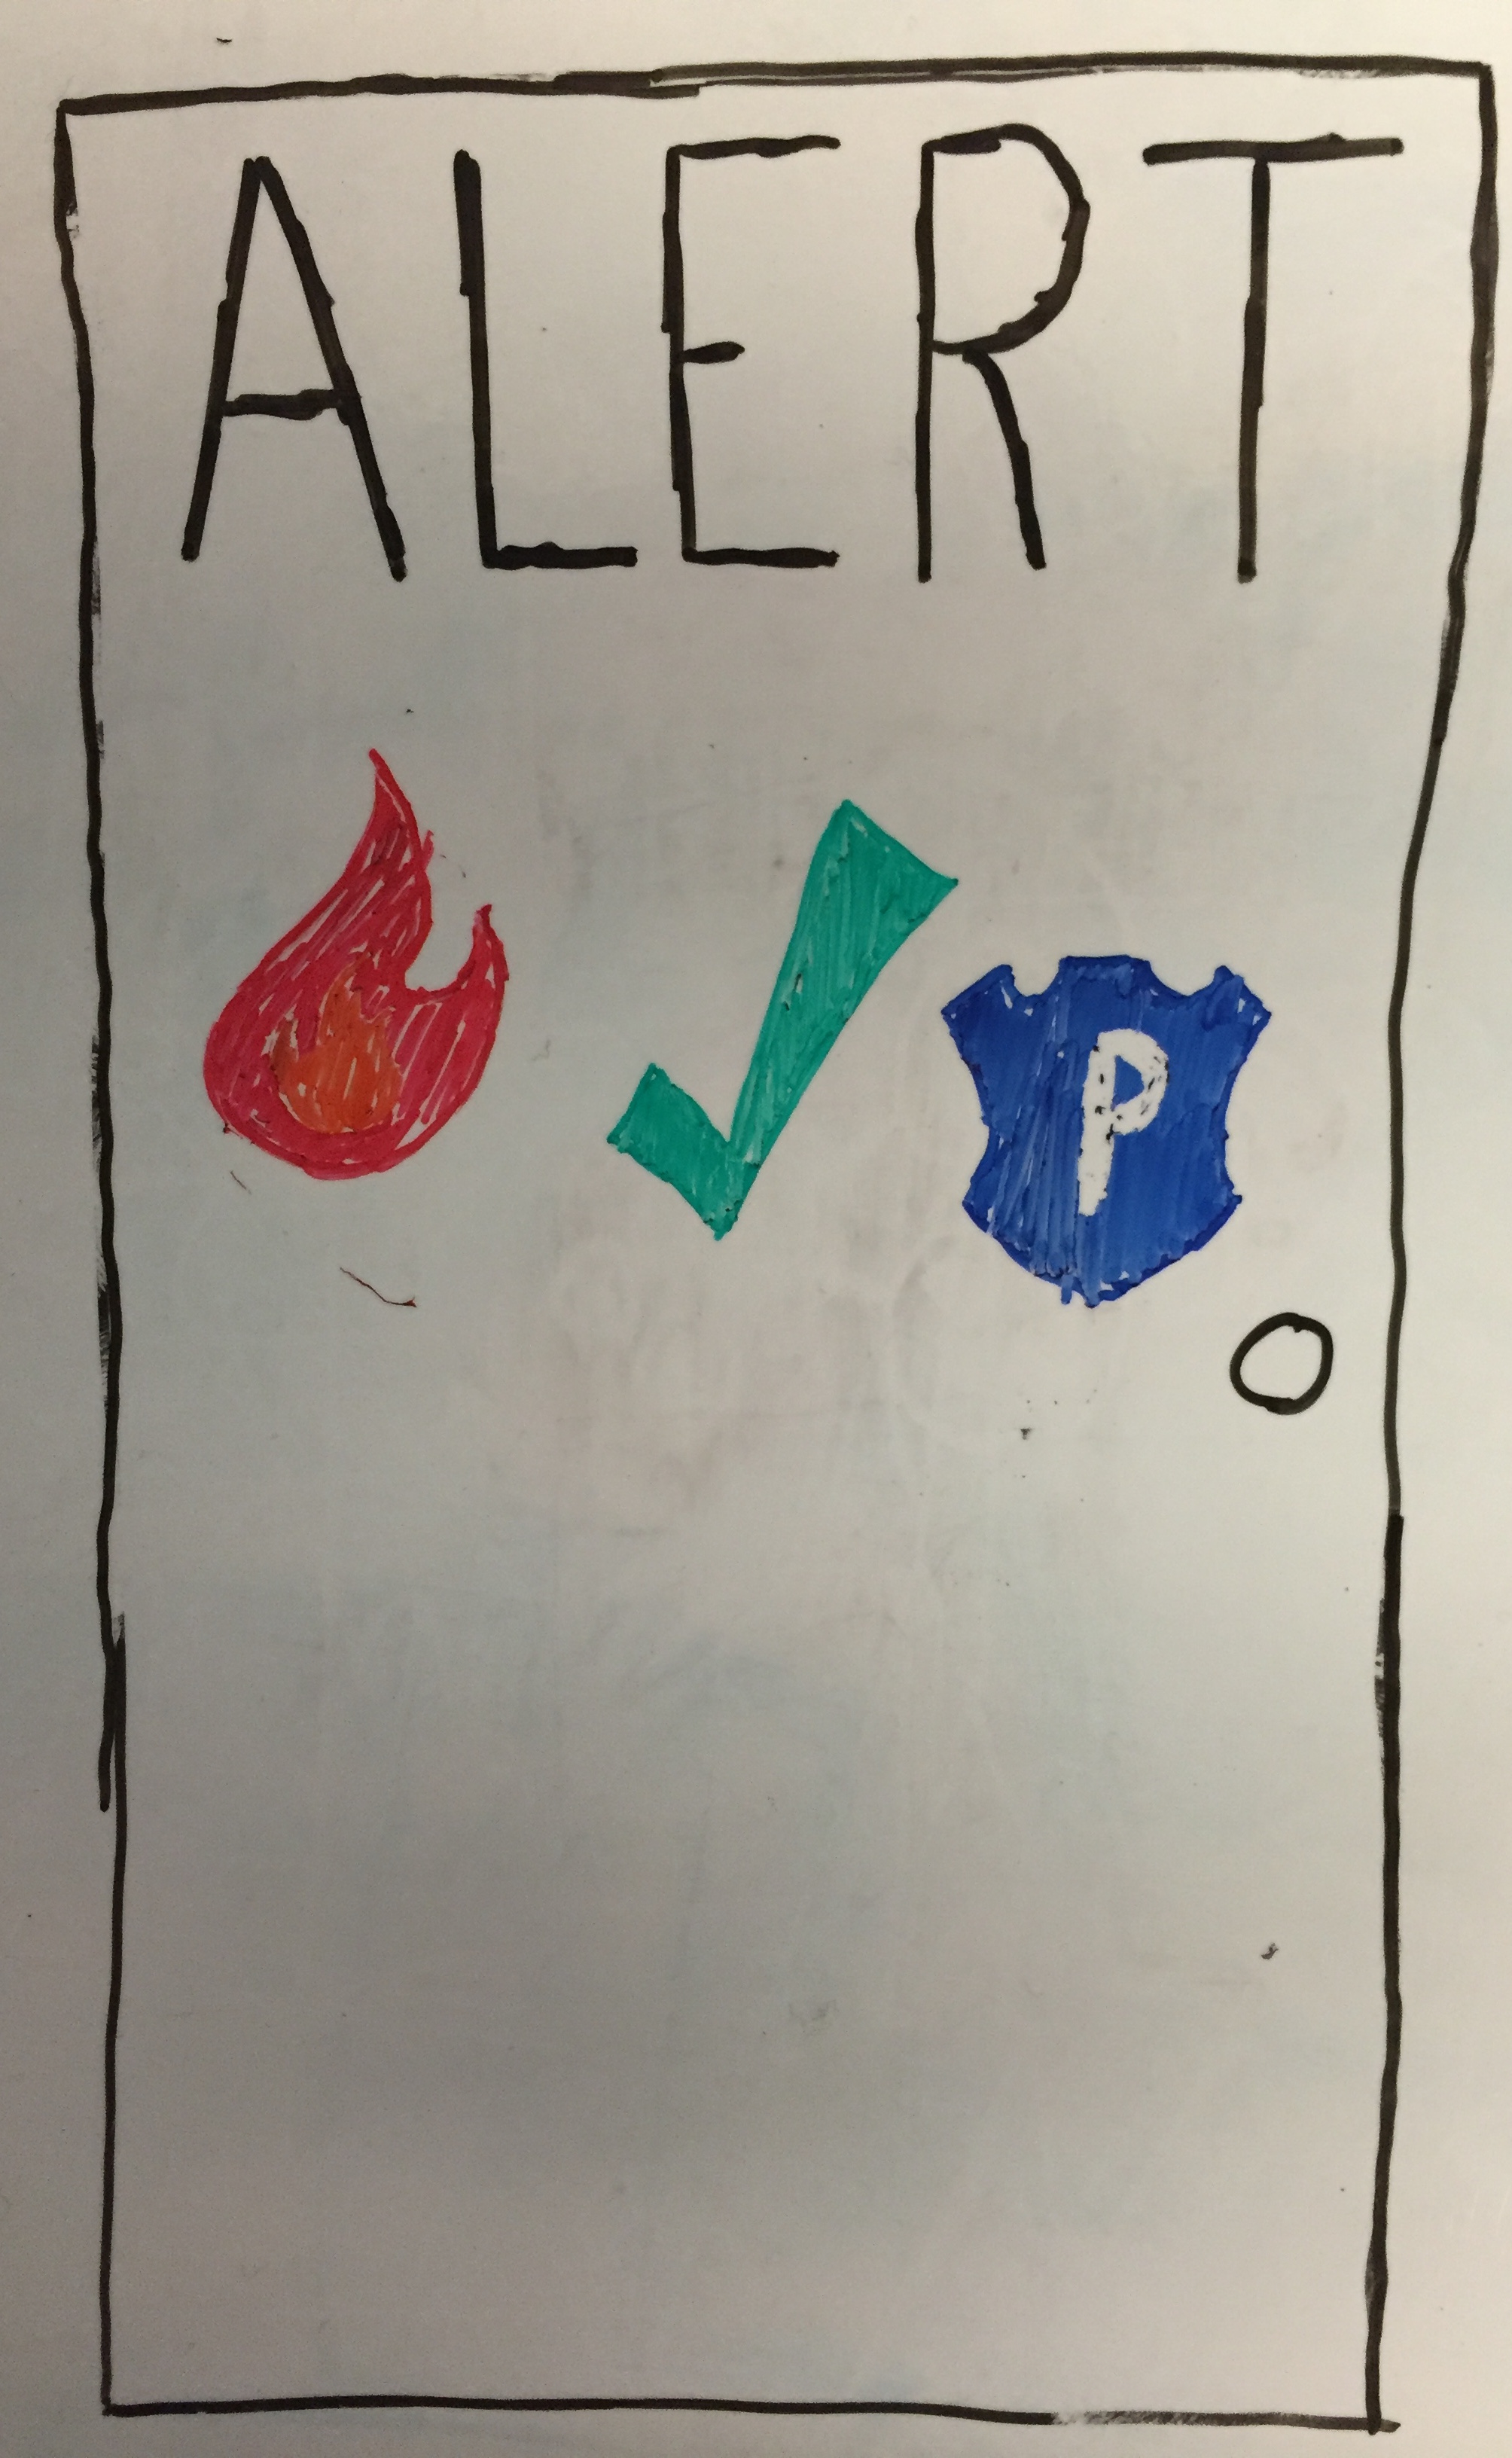 ALERT
P